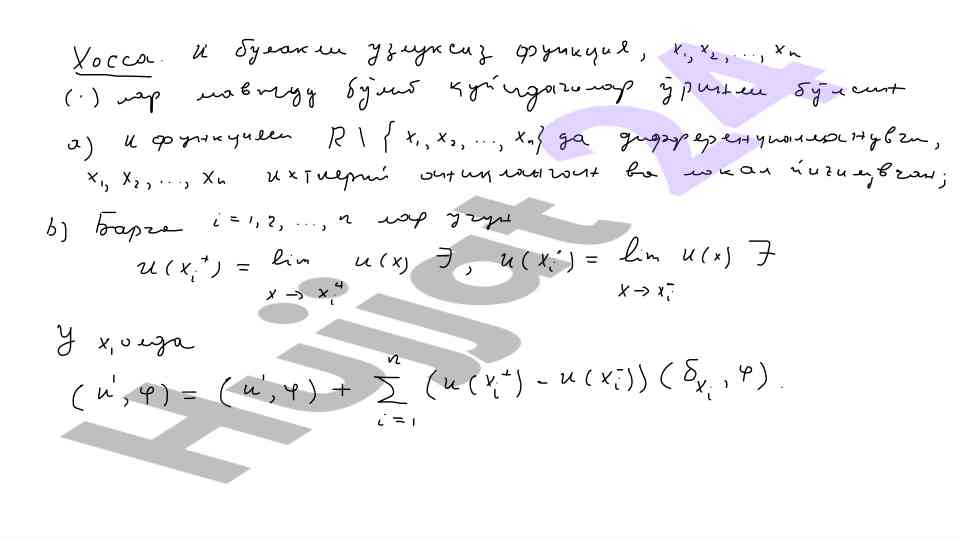 Хосса. u бўлакли узлуксиз функция, x₁, x₂, ..., xₙ
(·) лар мавжуд бўлиб қуйидагилар ўринли бўлсин
a) u функцияси R \ { x₁, x₂, ..., xₙ} да дифференциалланувчи,
x₁, x₂, ..., xₙ ихтиёрий аниқланган ва локал йиғилувчан;
b) Барча i = 1, 2, ..., n лар учун
u(xᵢ⁺) = lim u(x) ∃, u(xᵢ⁻) = lim u(x) ∃
x → xᵢ⁺ x → xᵢ⁻
У ҳолда
(u', φ) = (u', φ) + ∑ᵢ₌₁ⁿ (u(xᵢ⁺) - u(xᵢ⁻)) (δₓᵢ, φ).
Hujjat 24